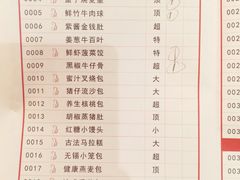 0005 鲜竹牛肉球 顶
0006 紫酱金钱肚 超
0007 姜葱牛百叶 特
0008 鲜虾菠菜饺 特
0009 黑椒牛仔骨 超
0010 蜜汁叉烧包 大
0011 猪仔流沙包 大
0012 养生核桃包 超
0013 胡椒蒸猪肚 顶
0014 红糖小馒头 小
0015 古法马拉糕 大
0016 无锡小笼包 超
0017 健康燕麦包 顶